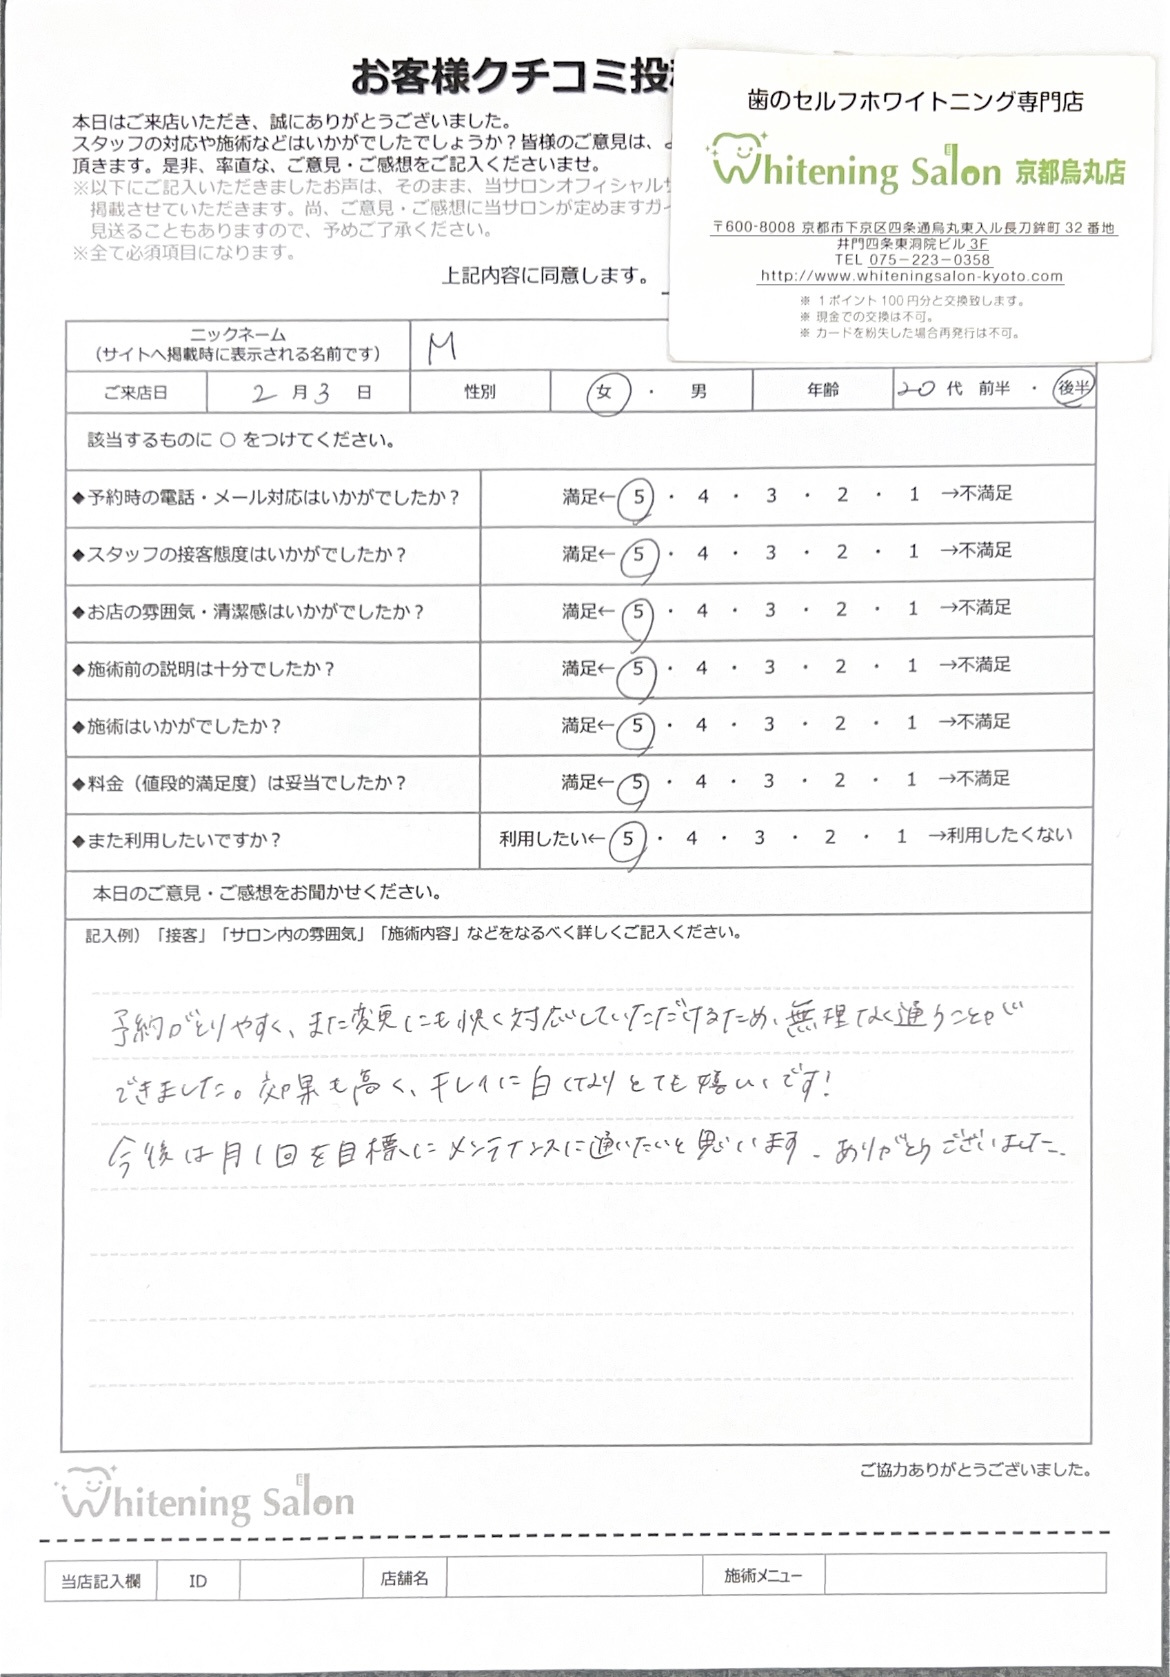 お客様クチコミ投
本日はご来店いただき、誠にありがとうございました。
スタッフの対応や施術などはいかがでしたでしょうか？皆様のご意見は、よ
頂きます。是非、率直な、ご意見・ご感想をご記入くださいませ。
※以下にご記入いただきましたお声は、そのまま、当サロンオフィシャルサ
掲載させていただきます。尚、ご意見・ご感想に当サロンが定めますガイ
見送ることもありますので、予めご了承ください。
※全て必須項目になります。
上記内容に同意します。
歯のセルフホワイトニング専門店
Whitening Salon 京都烏丸店
〒600-8008 京都市下京区四条通烏丸東入ル長刀鉾町 32 番地
井門四条東洞院ビル 3F
TEL 075-223-0358
http://www.whiteningsalon-kyoto.com
※ 1ポイント100円分と交換致します。
※ 現金での交換は不可。
※ カードを紛失した場合再発行は不可。
ニックネーム
（サイトへ掲載時に表示される名前です） M
ご来店日 2 月 3 日 性別 女 ・ 男 年齢 20 代 前半 ・ 後半
該当するものに ○ をつけてください。
◆予約時の電話・メール対応はいかがでしたか？ 満足← 5 ・ 4 ・ 3 ・ 2 ・ 1 →不満足
◆スタッフの接客態度はいかがでしたか？ 満足← 5 ・ 4 ・ 3 ・ 2 ・ 1 →不満足
◆お店の雰囲気・清潔感はいかがでしたか？ 満足← 5 ・ 4 ・ 3 ・ 2 ・ 1 →不満足
◆施術前の説明は十分でしたか？ 満足← 5 ・ 4 ・ 3 ・ 2 ・ 1 →不満足
◆施術はいかがでしたか？ 満足← 5 ・ 4 ・ 3 ・ 2 ・ 1 →不満足
◆料金（値段的満足度）は妥当でしたか？ 満足← 5 ・ 4 ・ 3 ・ 2 ・ 1 →不満足
◆また利用したいですか？ 利用したい← 5 ・ 4 ・ 3 ・ 2 ・ 1 →利用したくない
本日のご意見・ご感想をお聞かせください。
記入例）「接客」「サロン内の雰囲気」「施術内容」などをなるべく詳しくご記入ください。
予約がとりやすく、また変更にも快く対応していただけるため、無理なく通うことが
できました。効果も高く、キレイに白くなりとても嬉しいです！
今後は月1回を目標にメンテナンスに通いたいと思います。ありがとうございました。
ご協力ありがとうございました。
Whitening Salon
当店記入欄 ID 店舗名 施術メニュー